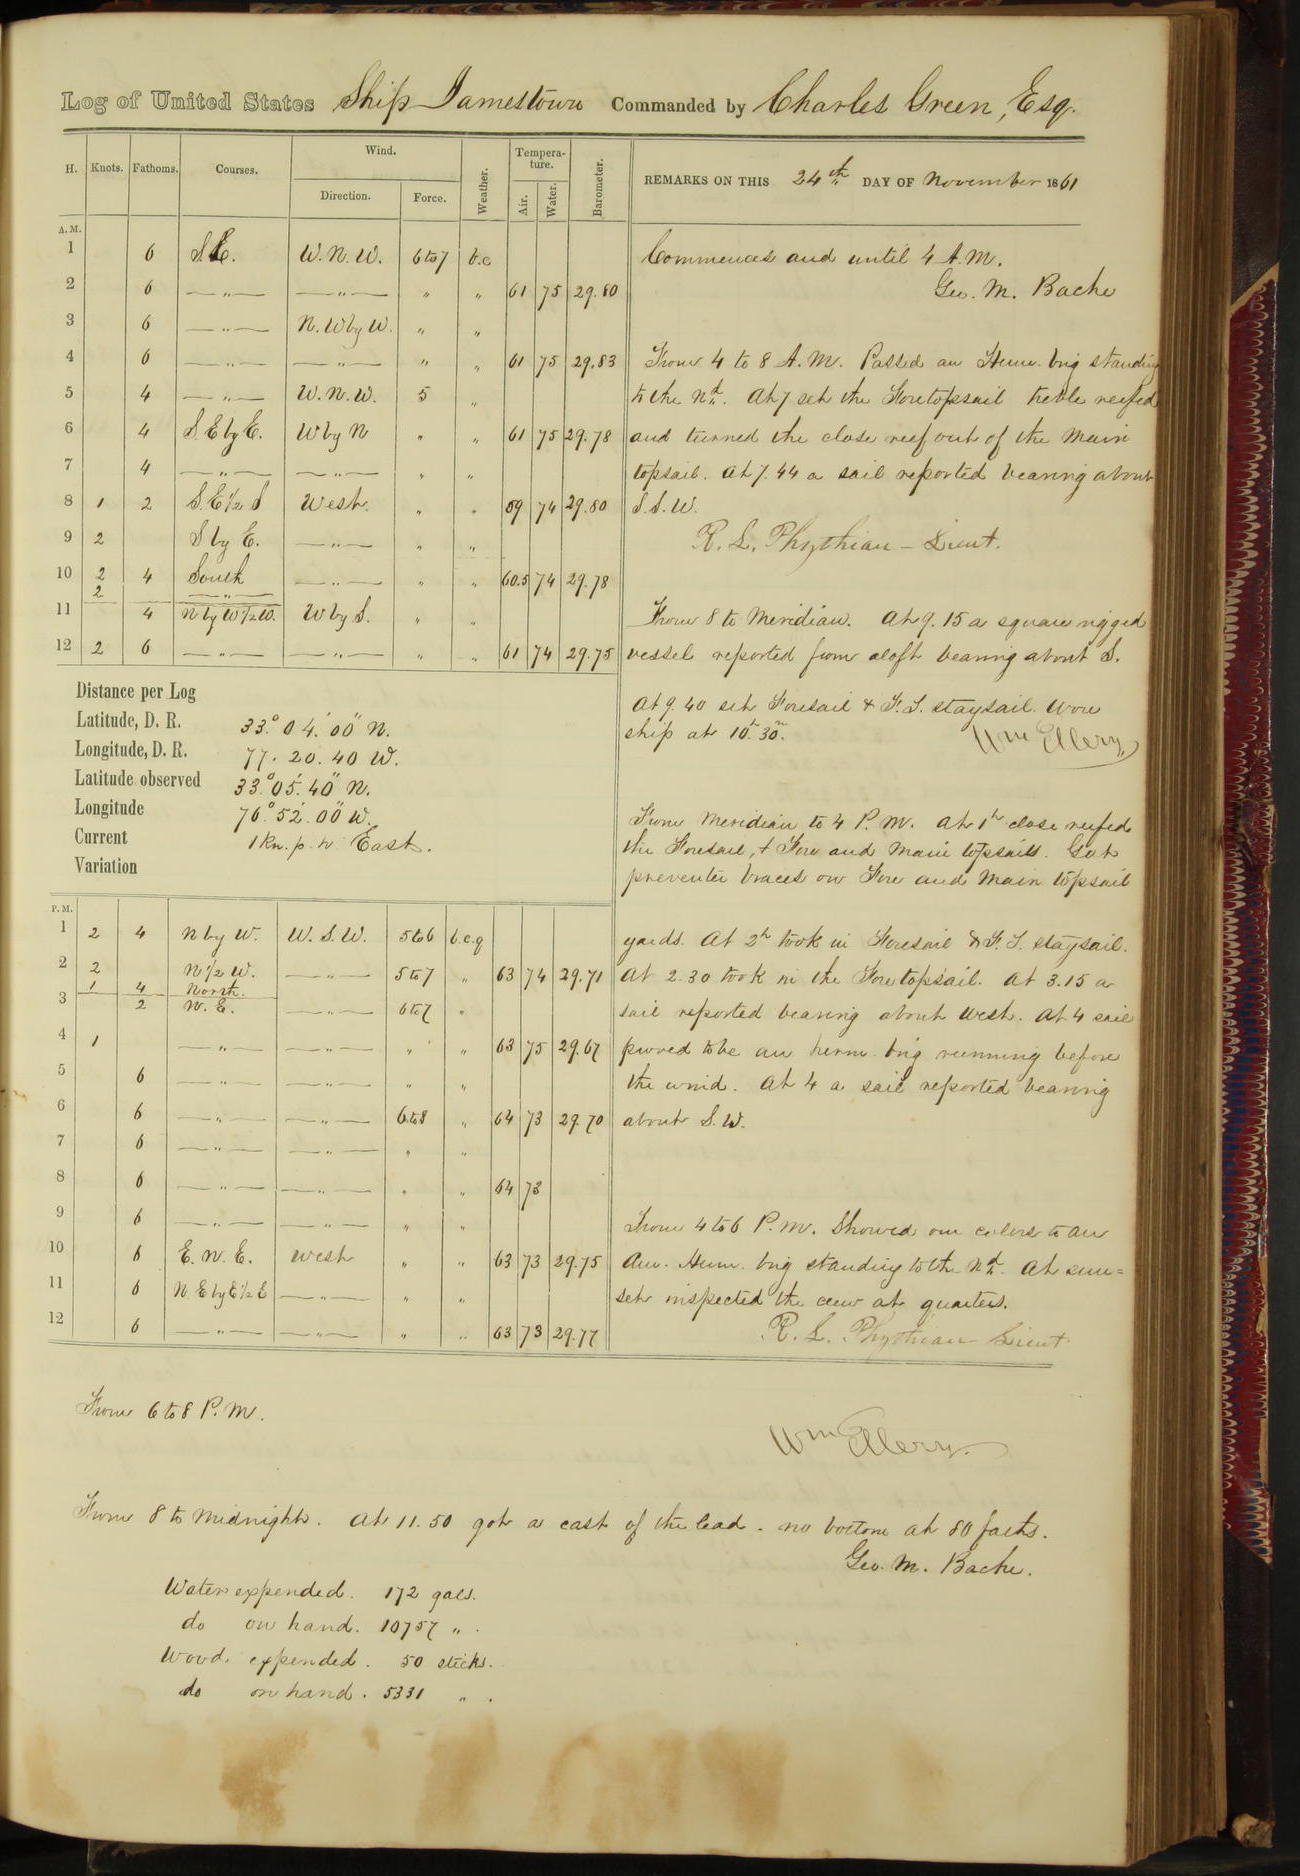 Log of United States Ship Jamestown Commanded by Charles Green, Esq.
H. Knots. Fathoms. Courses. Wind. Direction. Force. Weather. Temperature. Air. Water. Barometer.
REMARKS ON THIS 24th DAY OF November 1861
A.M.
1 6 S.E. W.N.W. 6 to 7 b.c
2 6 —„— —„— „ „ 61 75 29.80
3 6 —„— N.W by W. „ „
4 6 —„— —„— „ „ 61 75 29.83
5 4 —„— W.N.W. 5 „
6 4 S.E by E. W by N „ „ 61 75 29.78
7 4 —„— —„— „ „
8 1 2 S.E ½ S West. „ „ 59 74 29.80
9 2 S by E. —„— „ „
10 2 4 South —„— „ „ 60.5 74 29.78
2 —„—
11 4 N by W ½ W. W by S. „ „
12 2 6 —„— —„— „ „ 61 74 29.75
Commences and until 4 A.M.
Geo. M. Bache
From 4 to 8 A.M. Passed an Herm. brig standing
to the Nd. At 7 set the Foretopsail treble reefed
and turned the close reef out of the Main
topsail. At 7.44 a sail reported bearing about
S.S.W.
R. L. Phythian — Lieut.
From 8 to Meridian. At 9.15 a square rigged
vessel reported from aloft bearing about S.
At 9.40 set Foresail & F.T. staysail. Wore
ship at 10h 30m.
Wm Ellery
Distance per Log
Latitude, D. R. 33° 04' 00" N.
Longitude, D. R. 77. 20. 40 W.
Latitude observed 33° 05' 40" N.
Longitude 76° 52' 00" W.
Current 1 Kn. p. h East.
Variation
From Meridian to 4 P.M. At 1h close reefed
the Foresail, & Fore and Main topsails. Got
preventer braces on Fore and Main topsail
yards. At 2h took in Foresail & F.T. staysail.
At 2.30 took in the Fore topsail. At 3.15 a
sail reported bearing about West. At 4 sail
proved to be an herm. brig running before
the wind. At 4 a sail reported bearing
about S.W.
P.M.
1 2 4 N by W. W.S.W. 5 to 6 b.c.q
2 2 N ½ W. —„— 5 to 7 „ 63 74 29.71
1 4 North.
3 2 N.E. —„— 6 to 7 „
4 1 —„— —„— „ „ 63 75 29.67
5 6 —„— —„— „ „
6 6 —„— —„— 6 to 8 „ 64 73 29.70
7 6 —„— —„— „ „
8 6 —„— —„— „ „ 64 73
9 6 —„— —„— „ „
10 6 E.N.E. West „ „ 63 73 29.75
11 6 N.E by E ½ E —„— „ „
12 6 —„— —„— „ „ 63 73 29.77
From 4 to 6 P.M. Showed our colors to an
Am. Herm. brig standing to the Nd. At sun=
set inspected the crew at quarters.
R. L. Phythian Lieut
From 6 to 8 P.M.
Wm Ellery.
From 8 to Midnight. At 11.50 got a cast of the lead. no bottom at 80 faths.
Geo. M. Bache.
Water expended. 172 gals.
do on hand. 10757 „ .
Wood. expended. 50 sticks.
do on hand. 5331 „ .